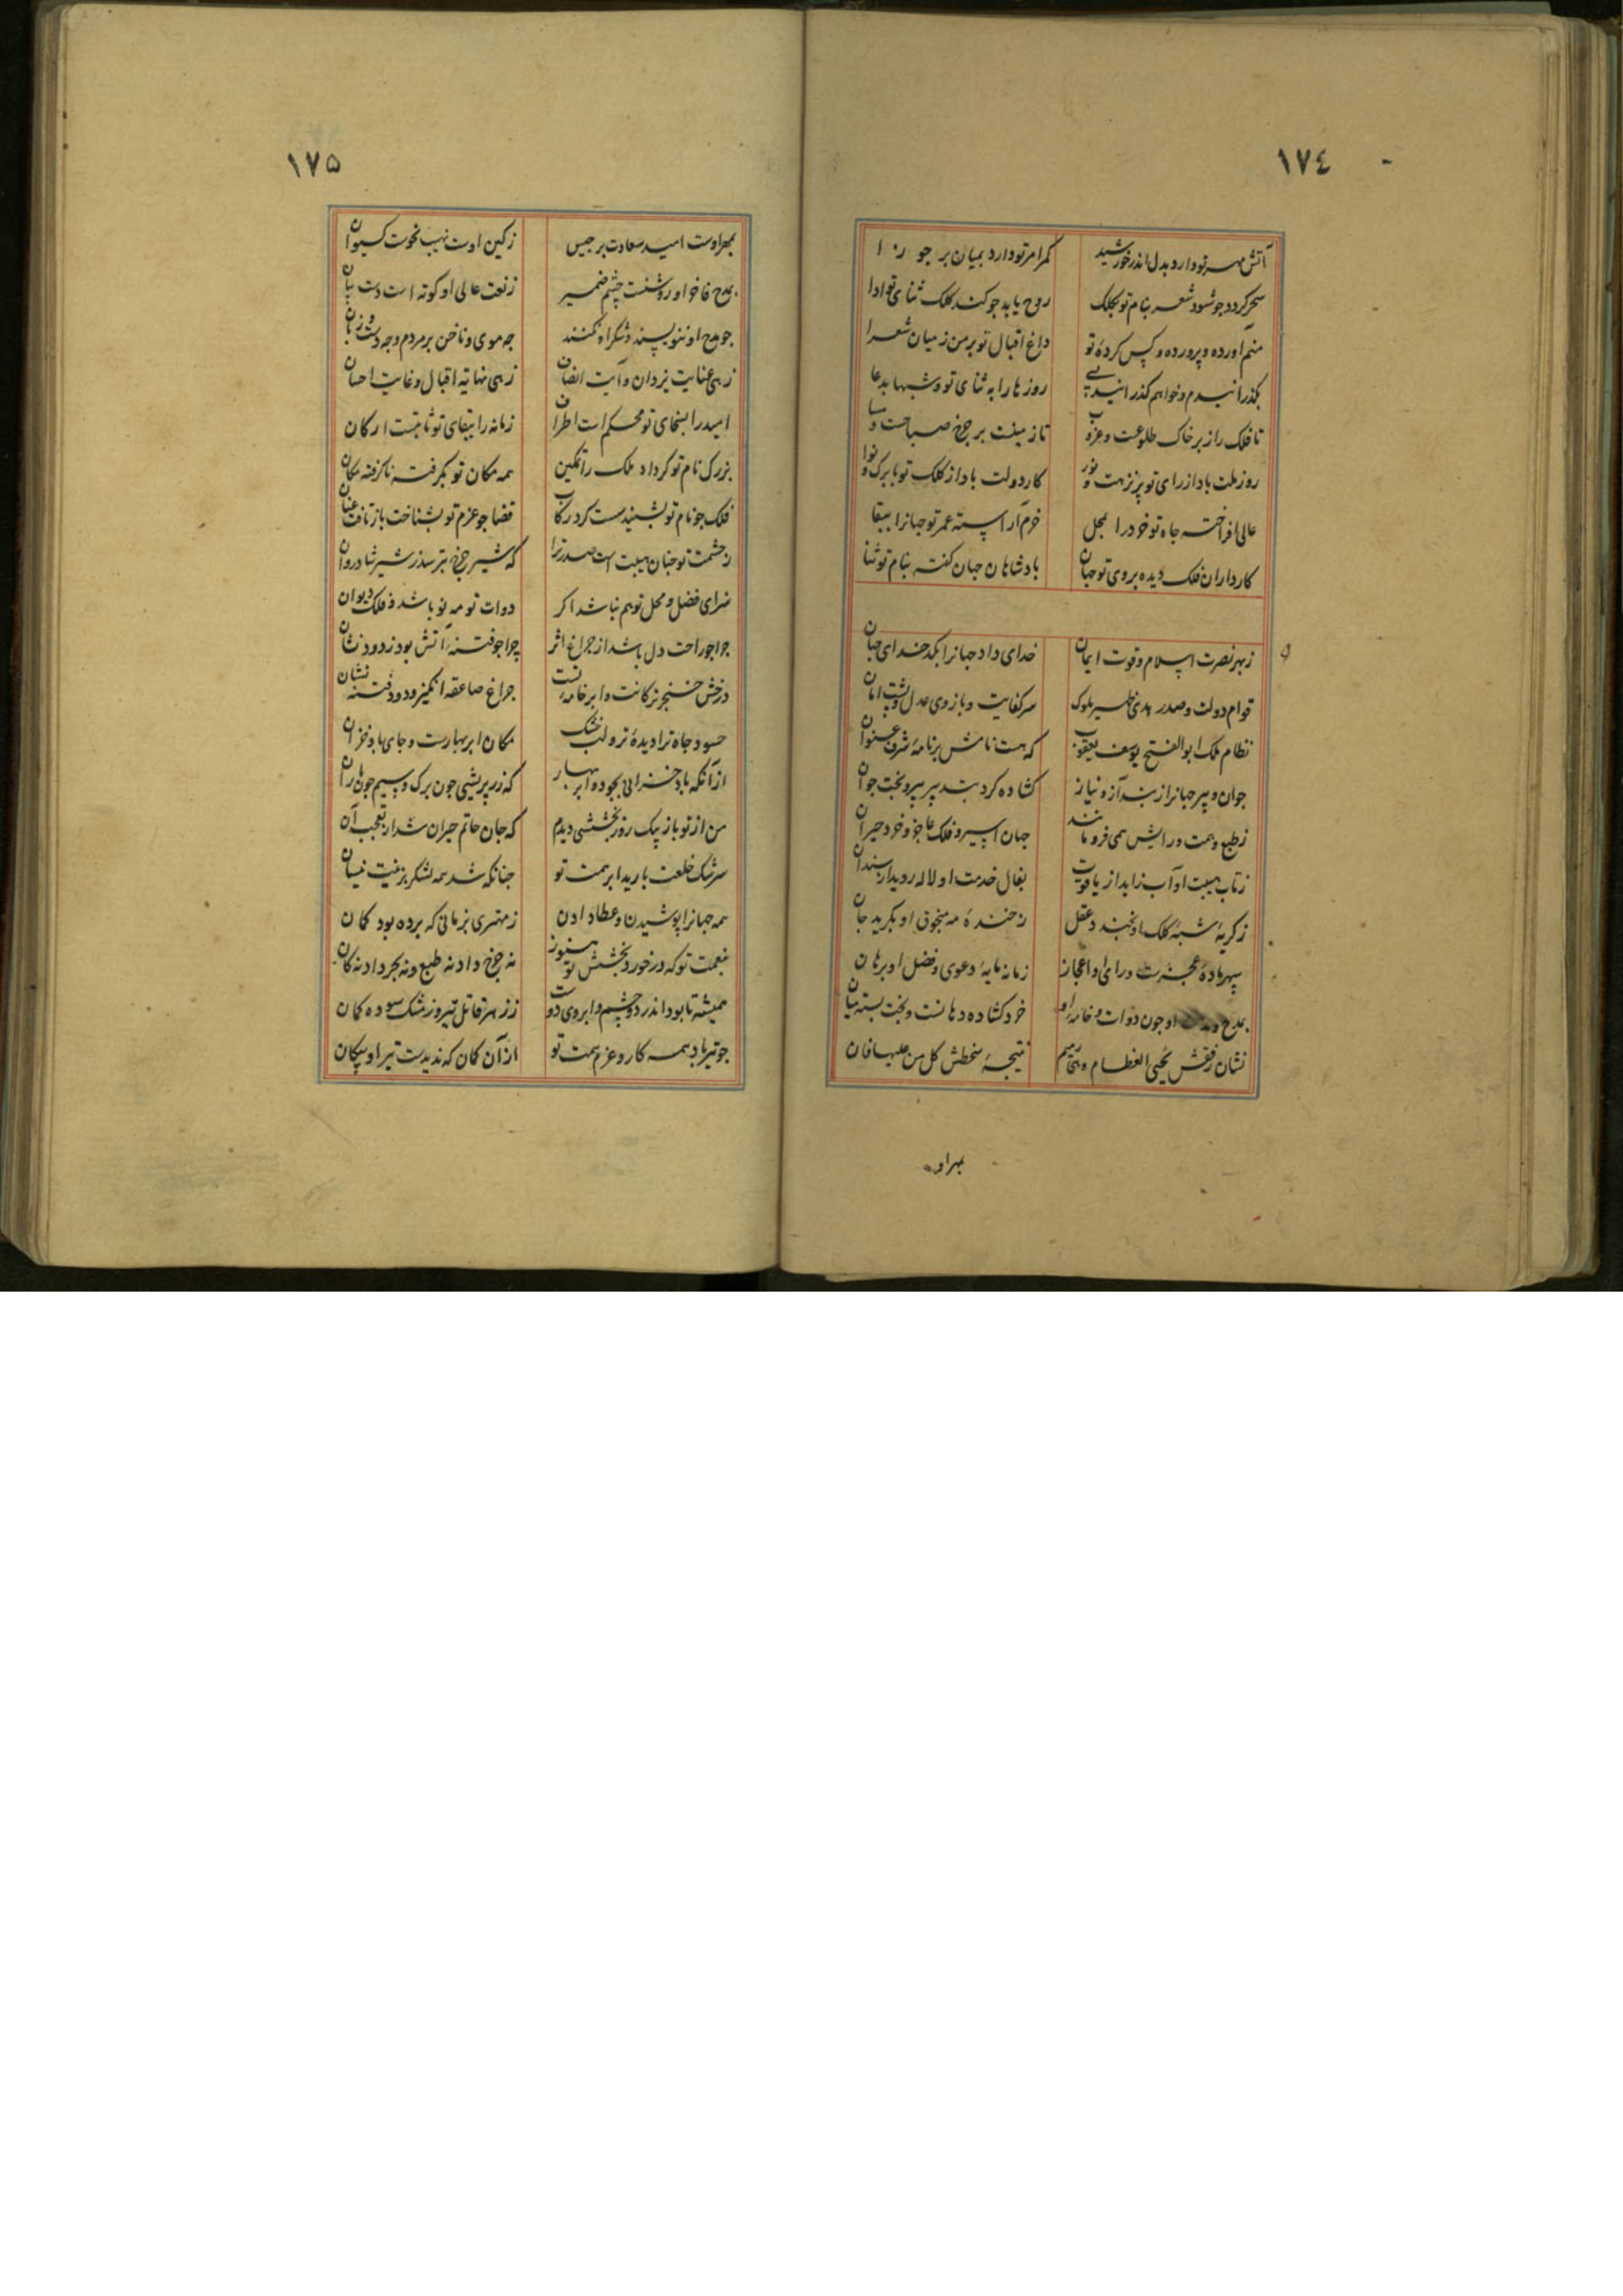 ١٧٤
آتش مهر تو دارد بدل اندر خورشید کمر امر تو دارد بمیان بر جوزا
سحر کردد جو شود شعر بنام تو بکلک روح یابد جو کند کلک ثنای تو ادا
منم اورده و پرورده و کس کردهٔ تو داغ اقبال تو بر من ز میان شعرا
بکذرانیدم و خواهم کذرانید روزها را به ثنای تو و شبها بدعا
تا فلک راز بر خاک طلوعست و غروب تا زمینست بر جرخ صباحست و مسا
روز ملت باد از رای تو پر نزهت و نور کار دولت باد از کلک تو با برک و نوا
عالی افراخته جاه تو خرد را بمحل خرم آراسته عمر تو جهانرا ببقا
کارداران فلک دیده بروی تو جهان بادشاهان جهان کفته بنام تو ثنا
ز بهر نصرت اسلام و قوت ایمان خدای داد جهانرا بکدخدای جهان
قوام دولت و صدر هدی ظهیر ملوک سر کفایت و بازوی عدل و پشت امان
نظام ملک ابو الفتح یوسف یعقوب که هست نامش بر نامهٔ شرف عنوان
جوان و پیر جهانرا ز بند آز و نیاز کشاده کرد بتدبیر پیر و بخت جوان
ز طبع و همت و رایش همی فرو مانند جهان اسیر و فلک عاجز و خرد حیران
ز تاب هیبت او آب زاید از یاقوت بفال خدمت او لاله روید از سندان
ز کریهٔ شبهٔ کلک او بخندد عقل ز خندهٔ مه منجوق او بکرید جان
سپهر مادهٔ معجزست و رای او اعجاز زمانه مایهٔ دعوی و فضل او برهان
بمدح و او جون دوات و خامهٔ او خرد کشاده دهانست و بخت بسته میان
نشان رفقش یحیی العظام وهی رمیم نتیجهٔ سخطش کل من علیها فان
بمهر او
١٧٥
بمهر اوست امید سعادت برجیس ز کین اوست نهیب نحوست کیوان
بمدح فاخر او روشنست چشم ضمیر ز نعت عالی او کوته است دست بیان
جو مدح او ننویسند و شکر او نکنند جه موی و ناخن بر مردم و جه دست و زبان
زهی عنایت یزدان و آیت انصاف زهی نهایه اقبال و غایت احسان
امید را بسخای تو محکم است اطراف زمانه را ببقای تو ثابتست ارکان
بزرک نام تو کرد داد ملک را تمکین همه مکان تو بکرفت ناکرفته مکان
فلک جو نام تو بشنید سست کرد رکاب قضا جو عزم تو بشناخت باز تافت عنان
ز حشمت تو جنان هیبت است صدر ترا که شیر جرخ بترسد ز شیر شادروان
سزای فضل و محل تو هم نباشد اکر دوات تو مه نو باشد و فلک دیوان
جرا جراحت دل باشد از جراغ اثر جرا جو فتنهٔ آتش بود ز دود نشان
درخش خنجر ترکانت و ابر خامهٔ تست جراغ صاعقه انکیز و دود فتنه نشان
حسود جاه ترا دیدهٔ تر و لب خشک مکان ابر بهارست و جای باد خزان
از آنکه باد خزانی بجود و ابر بهار که زر پریشی جون برک و سیم جون باران
من از تو بازیک روز بخششی دیدم که جان حاتم حیران شد از تعجب آن
سرشک خلعت بارید ابر همت تو جنانکه شد همه لشکر بزینت نیسان
همه جهانرا پوشیدن و عطا دادن ز مهتری بزمانی که برده بود کمان
بنعمت تو که در خورد بخشش تو هنوز نه جرخ داد نه طبع و نه بحر داد نه کان
همیشه تا بود اندر دو چشم و ابروی دوست ز زهر قاتل تیر و ز مشک سوده کمان
جو تیر باد همه کار و عزم همت تو از آن کمان که ندیدست تیر او پیکان